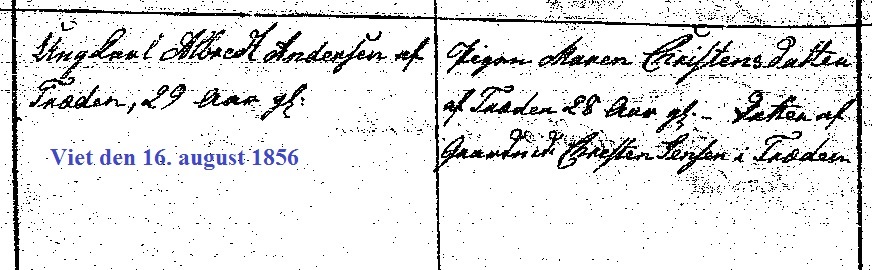 Ungkarl Albrecht Andersen af
Træden, 29 Aar gl:
Viet den 16. august 1856
Pigen Maren Christensdatter
af Træden 28 Aar gl. – Datter af
Gaardmd. Christen Jensen i Træden